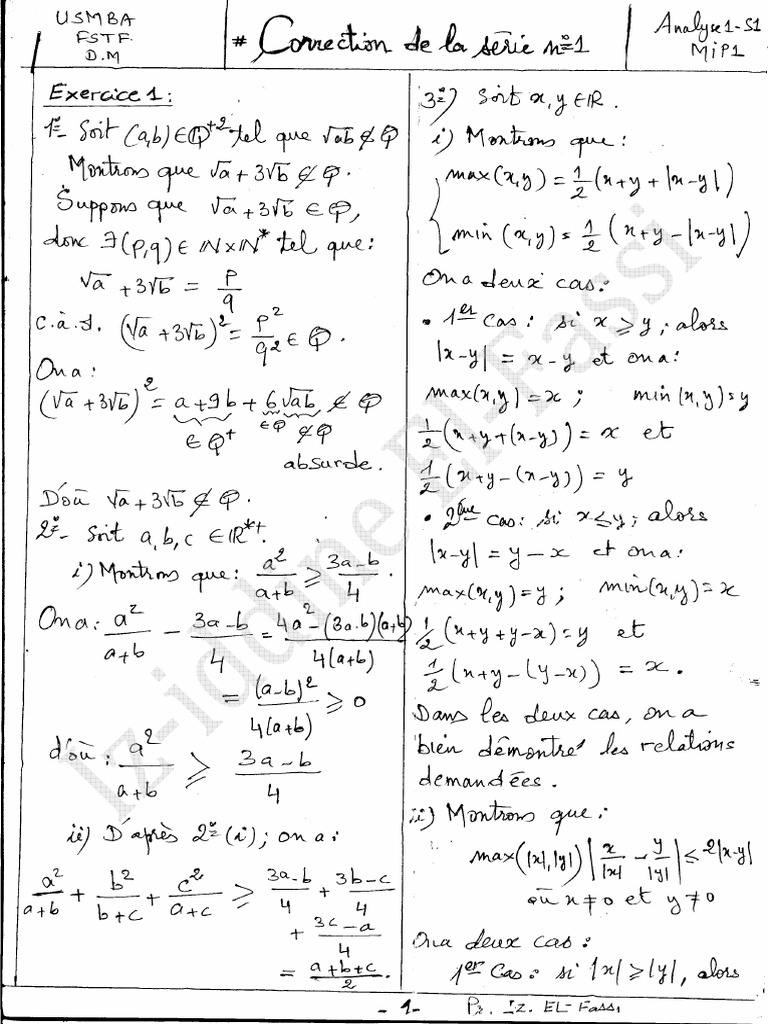 USMBA
FSTF.
D.M
# Correction de la série n°1
Analyse1-S1
MIP1
Exercice 1:
1°- Soit (a,b) ∈ ℚ⁺² tel que √ab ∉ ℚ
Montrons que √a + 3√b ∉ ℚ.
Suppons que √a + 3√b ∈ ℚ,
donc ∃(p,q) ∈ ℕ×ℕ* tel que:
√a + 3√b = p/q
c.à.d. (√a + 3√b)² = p²/q² ∈ ℚ.
On a:
(√a + 3√b)² = a + 9b + 6√ab ∉ ℚ
∈ ℚ⁺ ∈ℚ ∉ℚ
absurde.
D'où √a + 3√b ∉ ℚ.
2°- Soit a,b,c ∈ ℝ*⁺.
i) Montrons que: a²/(a+b) ⩾ (3a-b)/4.
On a: a²/(a+b) - (3a-b)/4 = (4a² - (3a-b)(a+b))/(4(a+b))
= (a-b)²/(4(a+b)) ⩾ 0
d'où: a²/(a+b) ⩾ (3a-b)/4
ii) D'après 2°(i); on a:
a²/(a+b) + b²/(b+c) + c²/(a+c) ⩾ (3a-b)/4 + (3b-c)/4
+ (3c-a)/4
= (a+b+c)/2.
3°) Soit x,y ∈ ℝ.
i) Montrons que:
max(x,y) = ½(x+y+|x-y|)
min(x,y) = ½(x+y-|x-y|)
On a deux cas:
• 1er cas: si x ⩾ y; alors
|x-y| = x-y et on a:
max(x,y) = x; min(x,y) = y
½(x+y+(x-y)) = x et
½(x+y-(x-y)) = y
• 2ème cas: si x ≤ y; alors
|x-y| = y-x et on a:
max(x,y) = y; min(x,y) = x
½(x+y+y-x) = y et
½(x+y-(y-x)) = x.
Dans les deux cas, on a
bien démontré les relations
demandées.
ii) Montrons que:
max(|x|,|y|) |x/|x| - y/|y|| ≤ 2|x-y|
où x ≠ 0 et y ≠ 0
On a deux cas:
1er Cas: si |x| ⩾ |y|, alors
-1-
Pr. Iz. EL-Fassi
Iz-iddine El-Fassi